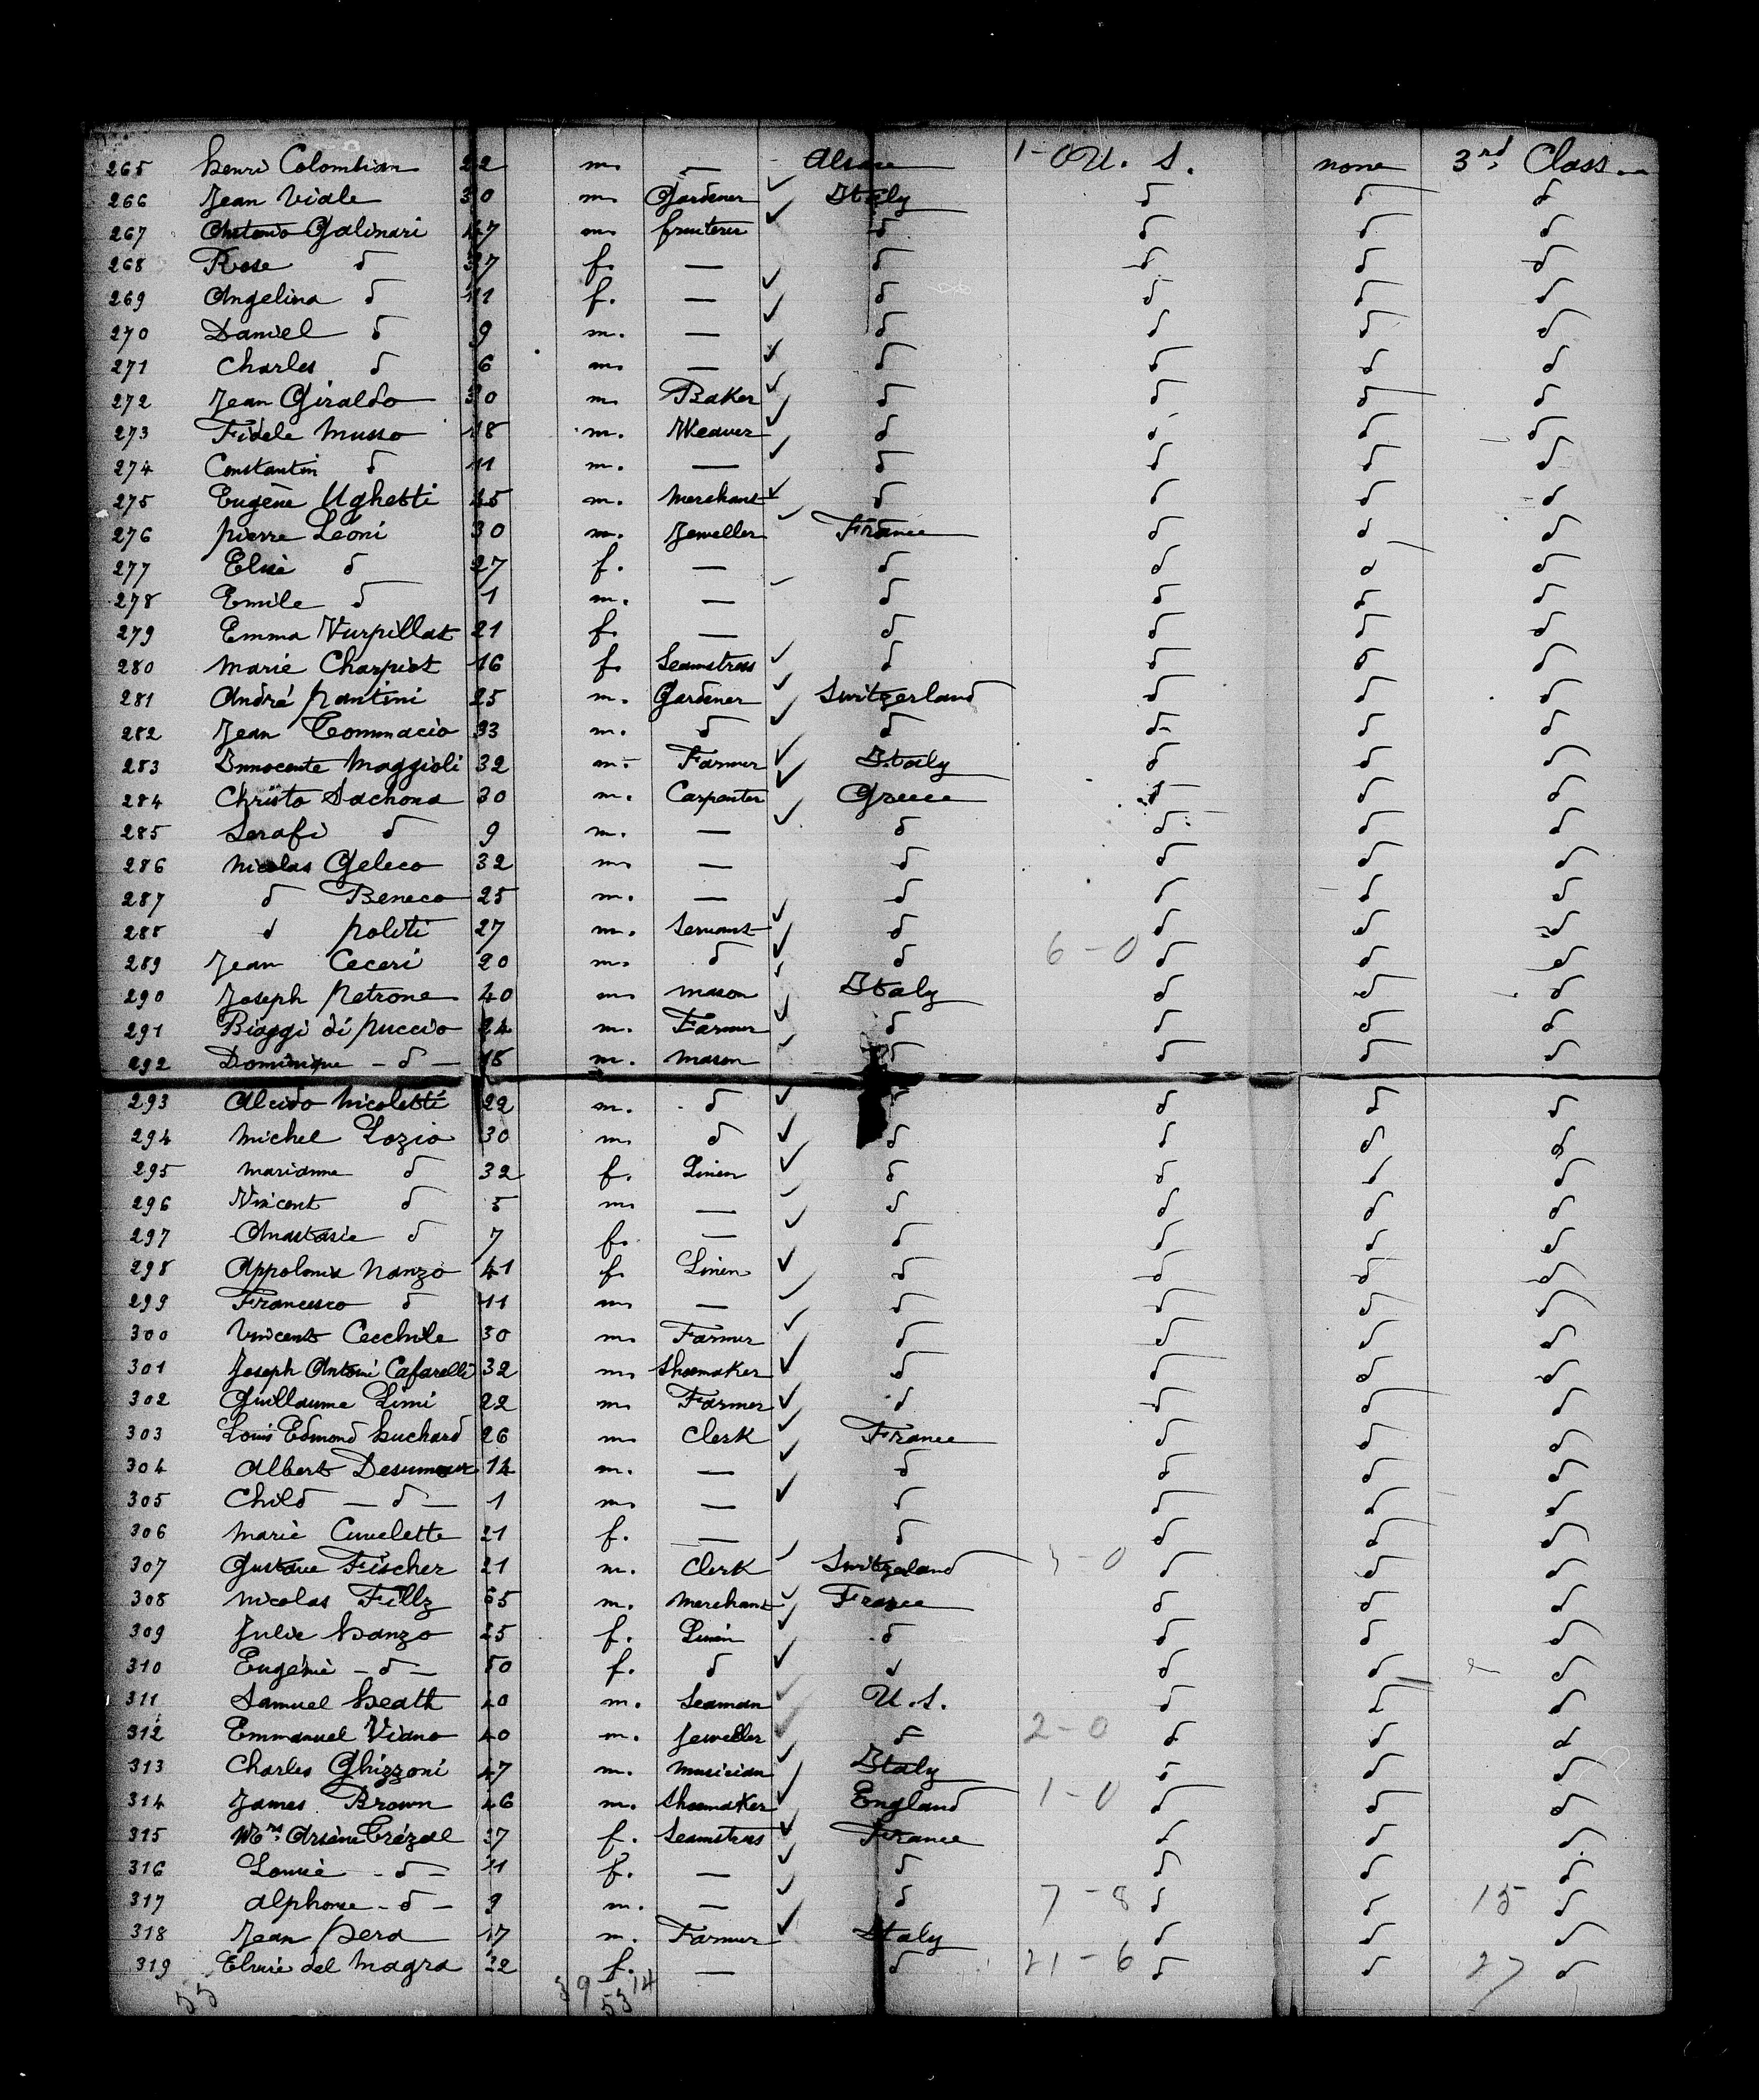 265 henri Colombian 22 m. — Alsace 1-0 U. S. none 3rd Class
266 Jean Viale 30 m. Gardener Italy d d d
267 Antonio Galinari 47 m. fruiterer d d d d
268 Rose d 37 f. — d d d d
269 Angelina d 11 f. — d d d d
270 Daniel d 9 m. — d d d d
271 Charles d 6 m. — d d d d
272 Jean Giraldo 30 m. Baker d d d d
273 Fidele Musso 18 m. Weaver d d d d
274 Constantin d 11 m. — d d d d
275 Eugène Ughetti 45 m. Merchant d d d d
276 pierre Léoni 30 m. Jeweller France d d d
277 Elise d 27 f. — d d d d
278 Emile d 1 m. — d d d d
279 Emma Vurpillat 21 f. — d d d d
280 Marie Charpiot 16 f. Seamstress d d d d
281 André pantini 25 m. Gardener Switzerland d d d
282 Jean 33 m. d d d d d
283 Innocente Maggioli 32 m. Farmer Italy d d d
284 Christo Sachona 30 m. Carpenter Greece d d d
285 Serafi d 9 m. — d d d d
286 Nicolas Geleco 32 m. — d d d d
287 d Beneco 25 m. — d d d d
288 d politi 27 m. Servant d d d d
289 Jean Ceceri 20 m. d d 6-0 d d d
290 Joseph petrone 40 m. mason Italy d d d
291 Biaggi di puccio 24 m. Farmer d d d d
292 Dominique - d - 18 m. mason d d d d
293 Alcido Nicoletti 22 m. d d d d d
294 Michel Lozio 30 m. d d d d d
295 Marianne d 32 f. Linen d d d d
296 Vincent d 5 m. — d d d d
297 Anastasie d 7 f. — d d d d
298 Appolonia Nanzo 41 f. Linen d d d d
299 Francesco d 11 m. — d d d d
300 Vincent Cecchile 30 m. Farmer d d d d
301 Joseph Antoni Cafarelli 32 m. Shoemaker d d d d
302 Guillaume Limi 22 m. Farmer d d d d
303 Louis Edmond huchard 26 m. Clerk France d d d
304 Albert Desumeur 14 m. — d d d d
305 Child — d — 1 m. — d d d d
306 Marie Cuvelette 21 f. — d d d d
307 Gustave Fischer 21 m. Clerk Switzerland d d d
308 Nicolas Fillz 65 m. Merchant France d d d
309 Julie hanzo 25 f. Linen d d d d
310 Eugénie - d - 50 f. d d d d d
311 Samuel heath 40 m. Seaman U.S. d d d
312 Emmanuel Viano 40 m. Jeweller d 2-0 d d d
313 Charles Ghizzoni 47 m. Musician Italy d d d
314 James Brown 46 m. Shoemaker England 1-0 d d d
315 Mrs. Arsène Crézal 37 f. Seamstress France d d d
316 Louise - d - 11 f. — d d d d
317 Alphonse - d - 9 m. — d 7-8 d d 15 d
318 Jean pera 17 m. Farmer Italy d d d
319 Elvire del Magra 22 f. — d 21-6 d d 27 d
55 39 14
53